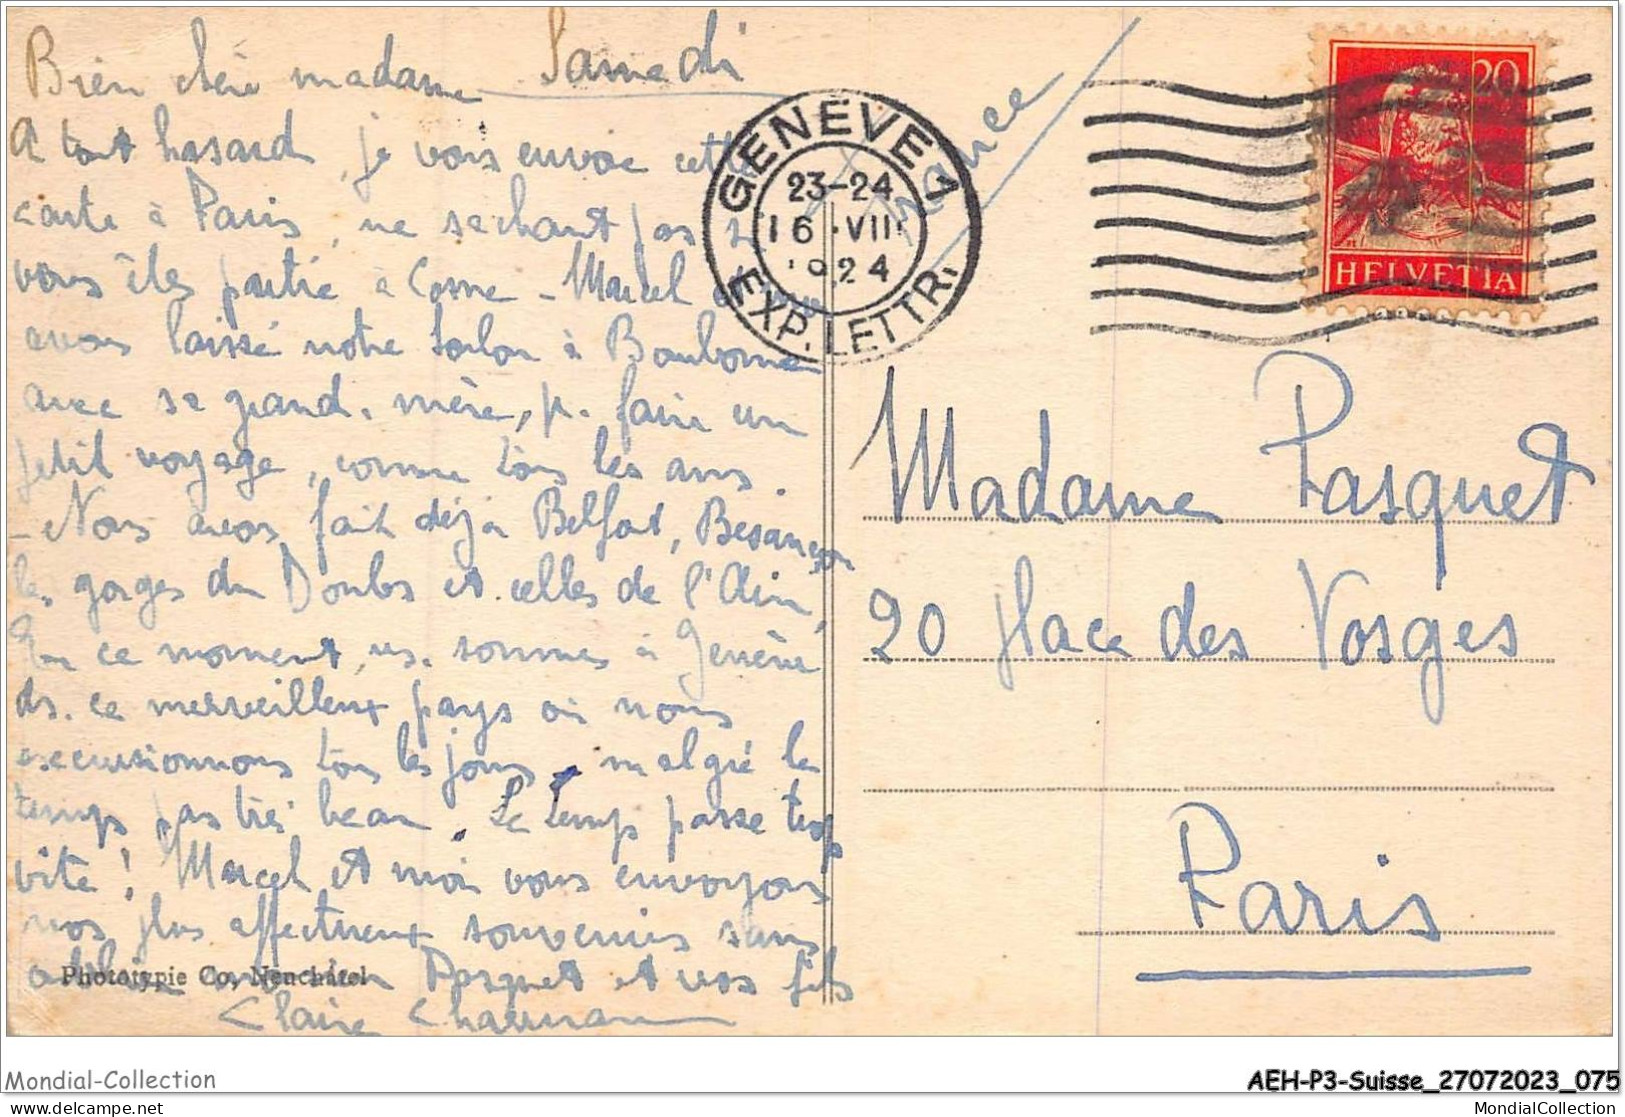 Samedi
Bien chère madame
A tout hasard, je vous envoie cette
carte à Paris, ne sachant pas si
vous êtes partie à Cosne - Marcel et
avons laissé notre à Bourbonne
avec sa grand-mère, p. faire un
petit voyage, comme tous les ans.
- Nous avons fait déjà Belfort, Besançon
les gorges du Doubs et celles de l'Ain,
En ce moment, ns. sommes à Genève
ds. ce merveilleux pays où nous
excursionnons tous les jours, malgré le
temps pas très beau. Le temps passe trop
vite! Marcel et moi vous envoyons
nos plus affectueux souvenirs sans
oublier Pasquet et vos fils
Claire
Phototypie Co, Neuchâtel
France
GENÈVE 1
23-24
16.VIII
1924
EXP. LETTR.
20
HELVETIA
Madame Pasquet
20 place des Vosges
Paris
Mondial-Collection
AEH-P3-Suisse_27072023_075
MondialCollection
delcampe.net
MondialCollection